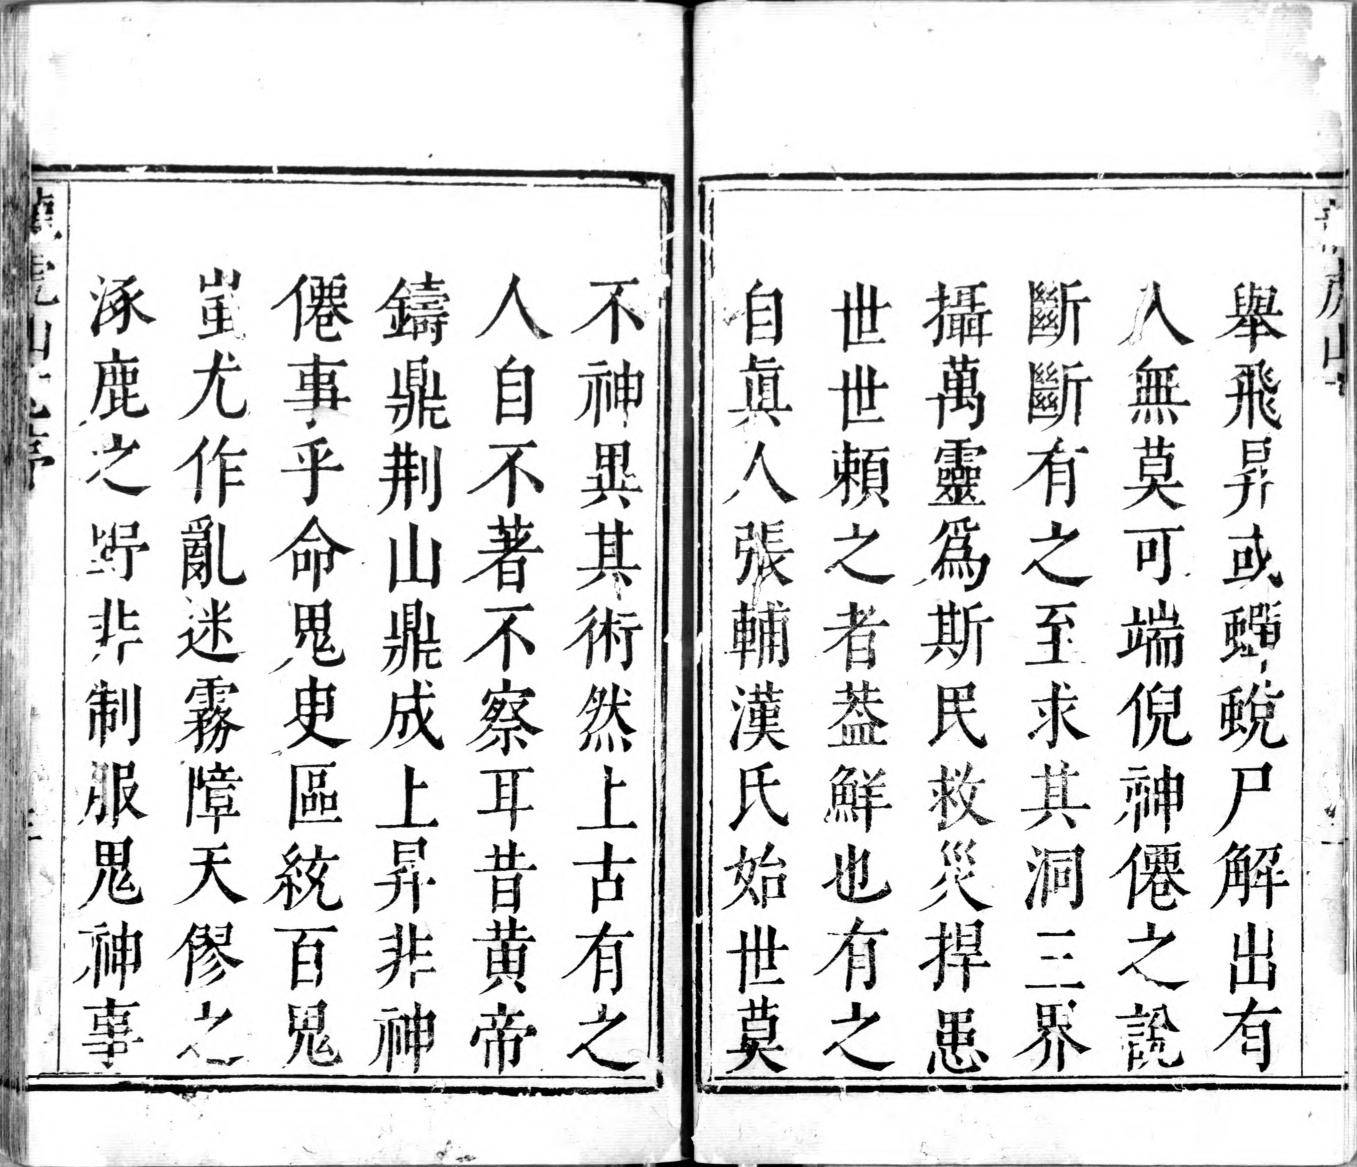 舉飛昇或蟬蛻尸解出有
入無莫可端倪神僊之說
斷斷有之至求其洞三界
攝萬靈爲斯民救災捍患
世世賴之者葢鮮也有之
自眞人張輔漢氏始世莫
不神異其術然上古有之
人自不著不察耳昔黃帝
鑄鼎荆山鼎成上昇非神
僊事乎命鬼吏區統百鬼
蚩尤作亂迷霧障天僇之
涿鹿之野非制服鬼神事